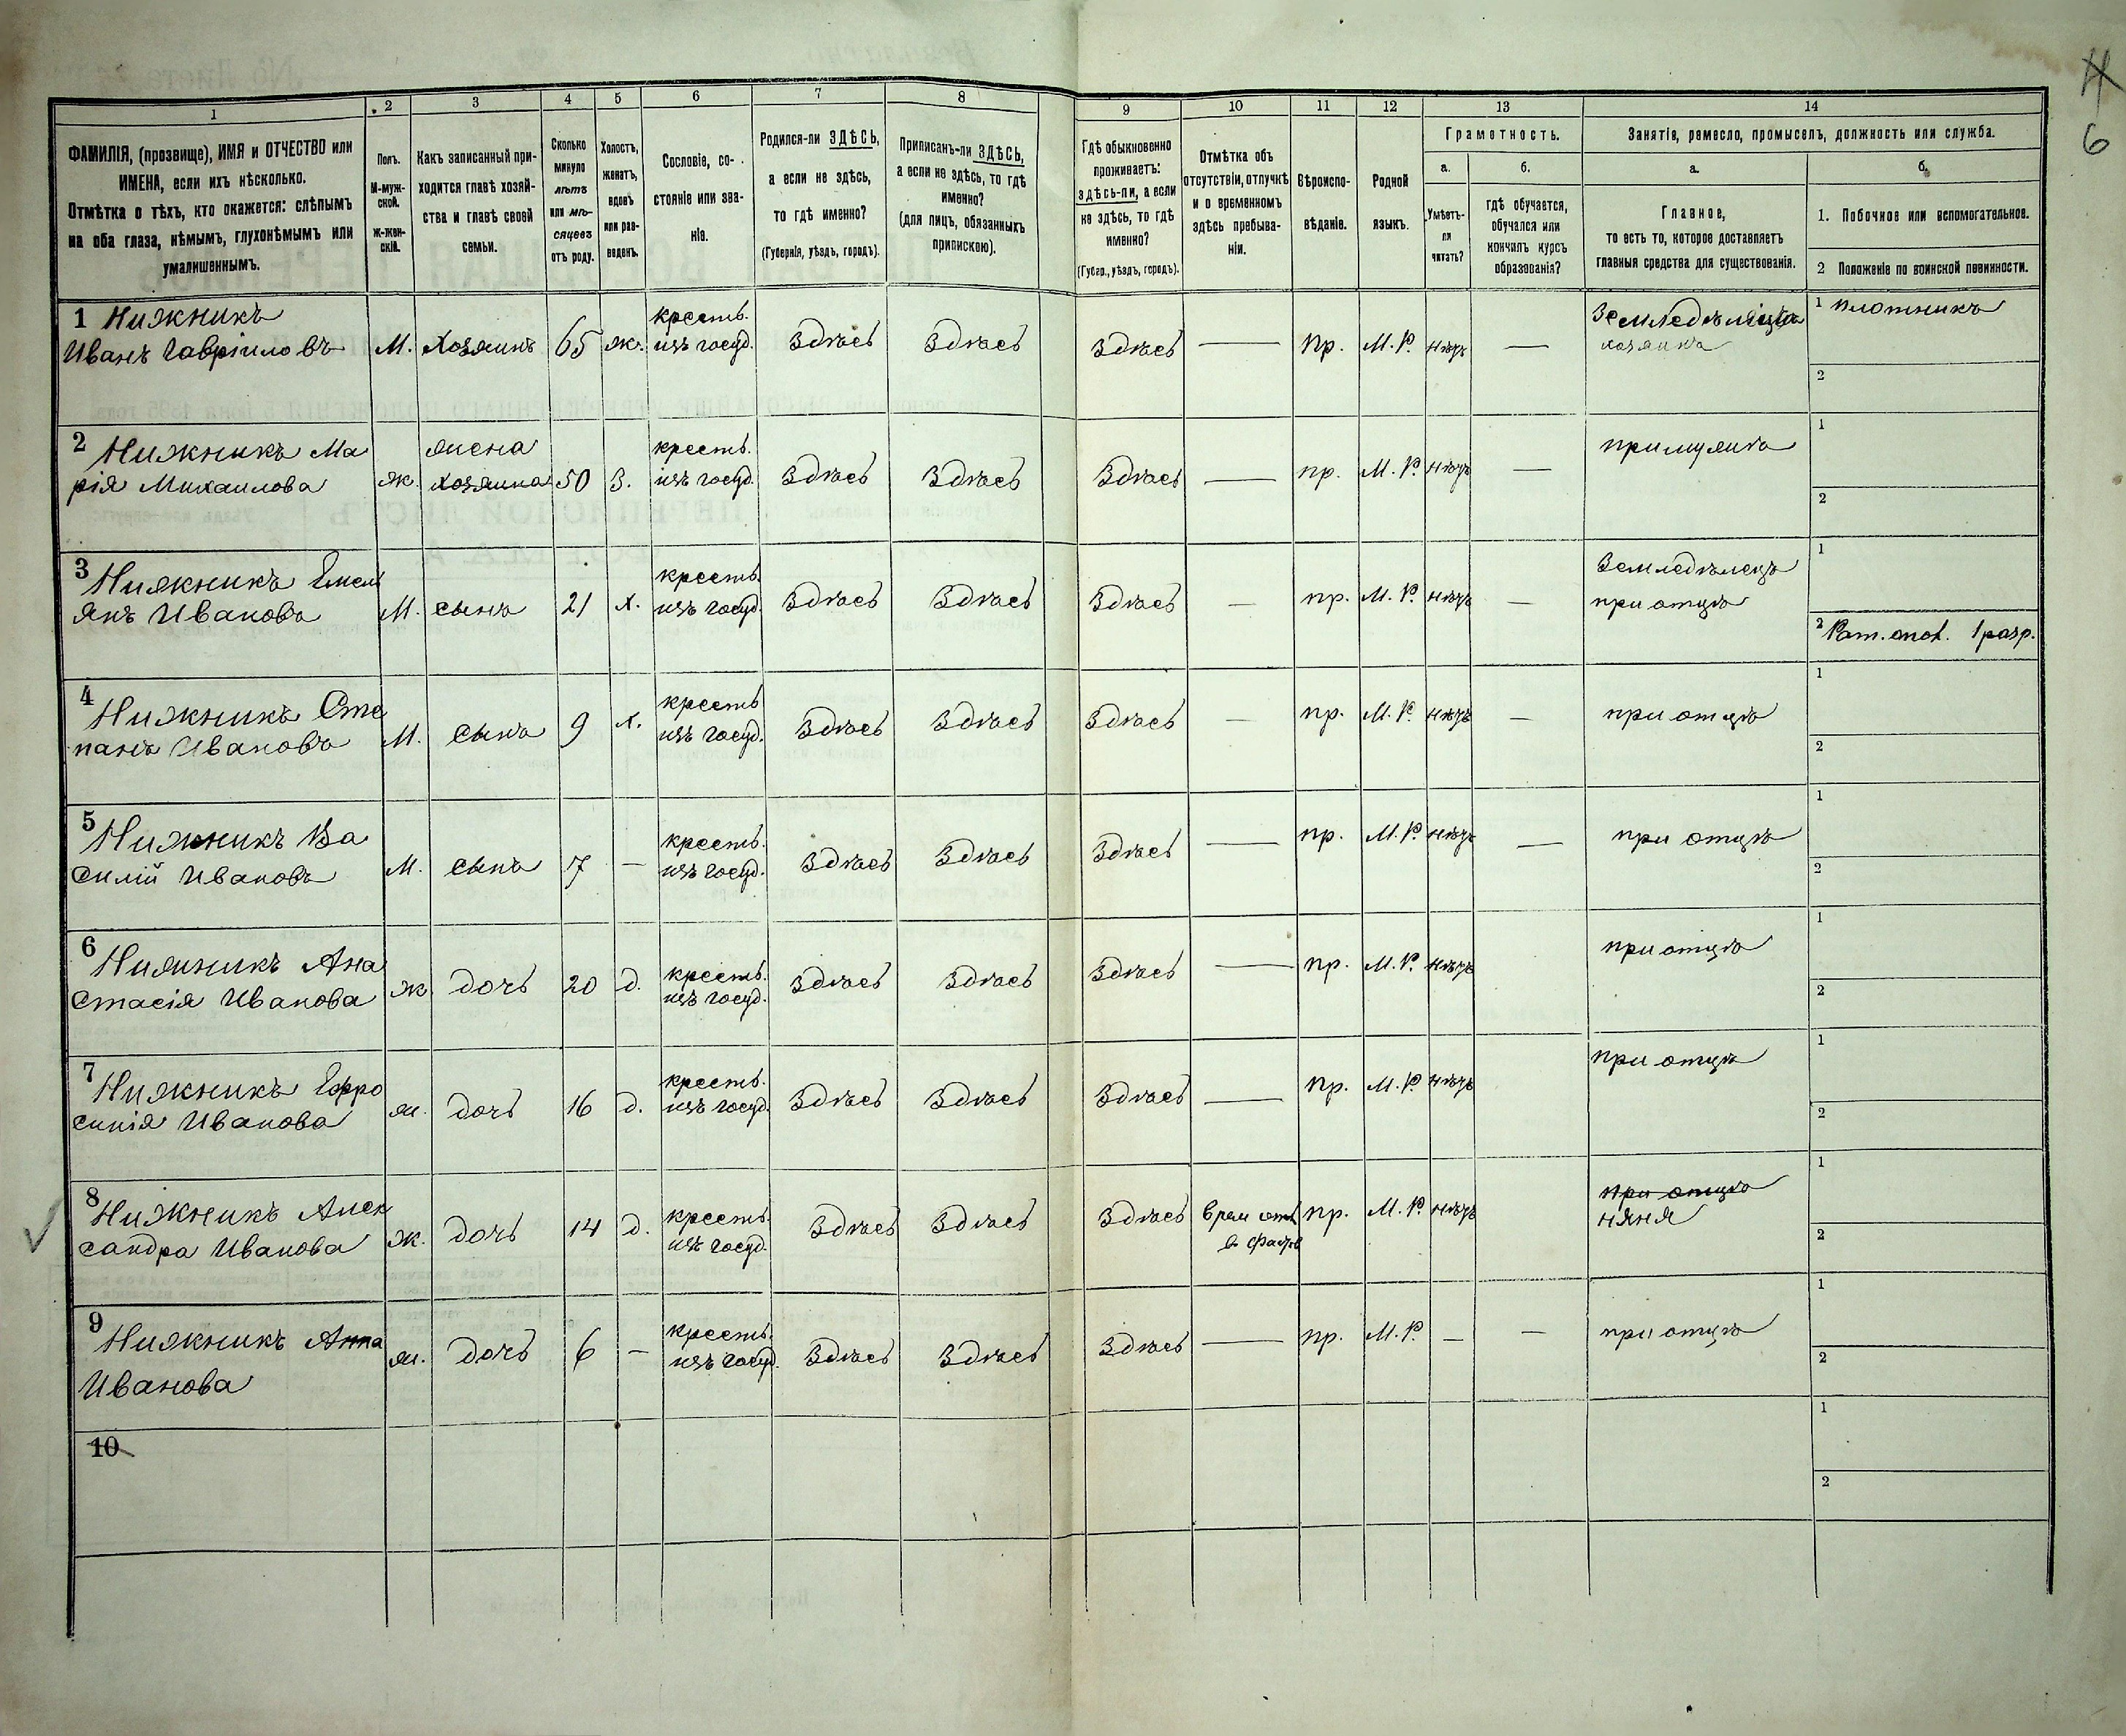 № Листа
6
1
2
3
4
5
6
7
8
9
10
11
12
13
14
ФАМИЛІЯ, (прозвище), ИМЯ и ОТЧЕСТВО или
ИМЕНА, если ихъ нѣсколько.
Отмѣтка о тѣхъ, кто окажется: слѣпымъ
на оба глаза, нѣмымъ, глухонѣмымъ или
умалишеннымъ.
Полъ.
М-муж-
ской.
Ж-жен-
скій.
Какъ записанный при-
ходится главѣ хозяй-
ства и главѣ своей
семьи.
Сколько
минуло
лѣтъ
или мѣ-
сяцевъ
отъ роду.
Холостъ,
женатъ,
вдовъ
или раз-
веденъ.
Сословіе, со-
стояніе или зва-
ніе.
Родился-ли ЗДѢСЬ,
а если не здѣсь,
то гдѣ именно?
(Губернія, уѣздъ, городъ).
Приписанъ-ли ЗДѢСЬ,
а если не здѣсь, то гдѣ
именно?
(для лицъ, обязанныхъ
припискою).
Гдѣ обыкновенно
проживаетъ:
здѣсь-ли, а если
не здѣсь, то гдѣ
именно?
(Губер., уѣздъ, городъ).
Отмѣтка объ
отсутствіи, отлучкѣ
и о временномъ
здѣсь пребыва-
ніи.
Вѣроиспо-
вѣданіе.
Родной
языкъ.
Грамотность.
а.
Умѣетъ-
ли
читать?
б.
гдѣ обучается,
обучался или
кончилъ курсъ
образованія?
Занятія, ремесло, промыселъ, должность или служба.
а.
Главное,
то есть то, которое доставляетъ
главныя средства для существованія.
б.
1. Побочное или вспомогательное.
2 Положеніе по воинской повинности.
1 Нижникъ
Иванъ Гавріиловъ
М. Хозяинъ 65 ж.
кресть.
изъ госуд.
Здѣсь Здѣсь Здѣсь — пр. М. Р. нѣтъ —
Земледѣлецъ
хозяинъ
1 плотникъ
2
2 Нижникъ Ма
рія Михаилова
ж.
жена
хозяина
50 З.
кресть.
изъ госуд.
Здѣсь Здѣсь Здѣсь — пр. М. Р. нѣтъ —
при мужѣ
1
2
3 Нижникъ Емель
янъ Ивановъ
М. сынъ 21 х.
кресть.
изъ госуд.
Здѣсь Здѣсь Здѣсь — пр. М. Р. нѣтъ —
Земледѣлецъ
при отцѣ
1
2 Рат. опол. 1 разр.
4 Нижникъ Сте
панъ Ивановъ
М. сынъ 9 х.
кресть
изъ госуд.
Здѣсь Здѣсь Здѣсь — пр. М. Р. нѣтъ —
при отцѣ
1
2
5 Нижникъ Ва
силій Ивановъ
М. сынъ 7 —
кресть.
изъ госуд.
Здѣсь Здѣсь Здѣсь — пр. М. Р. нѣтъ —
при отцѣ
1
2
6 Нижникъ Ана
стасія Иванова
ж. дочь 20 д.
кресть.
изъ госуд.
Здѣсь Здѣсь Здѣсь — пр. М. Р. нѣтъ
при отцѣ
1
2
7 Нижникъ Ефро
синія Иванова
ж. дочь 16 д.
кресть.
изъ госуд.
Здѣсь Здѣсь Здѣсь — пр. М. Р. нѣтъ
при отцѣ
1
2
8 Нижникъ Алек
сандра Иванова
ж. дочь 14 д.
кресть.
изъ госуд.
Здѣсь Здѣсь Здѣсь
врем отл
в Фастов
пр. М. Р. нѣтъ
при отцѣ
няня
1
2
9 Нижникъ Анна
Иванова
ж. дочь 6 —
кресть.
изъ госуд.
Здѣсь Здѣсь Здѣсь — пр. М. Р. — —
при отцѣ
1
2
10
1
2